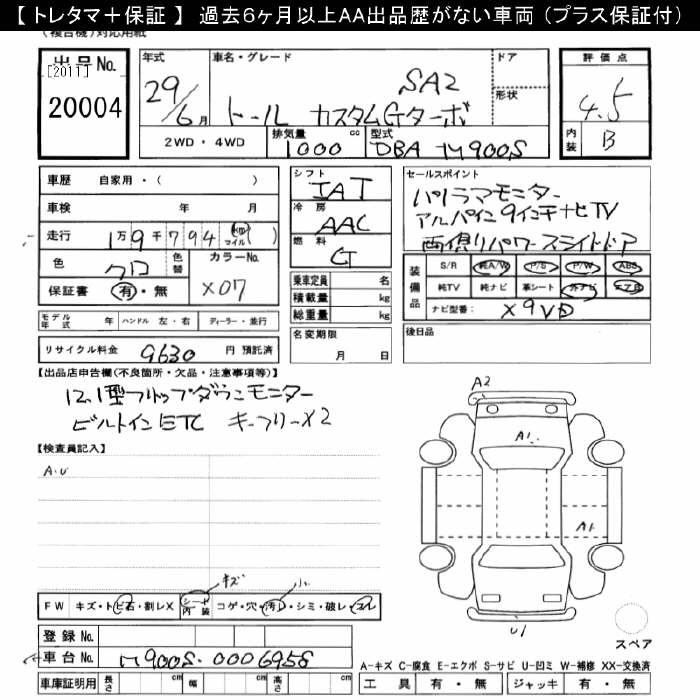 【 トレタマ＋保証 】 過去6ヶ月以上AA出品歴がない車両 (プラス保証付)
(複合機)対応用紙
出品No.
[2011]
20004
年式
29/6月
車名・グレード
SA2
トール カスタムGターボ
ドア
形状
評価点
4.5
内装 B
2WD・4WD
排気量 cc
1000
型式
DBA M900S
車歴 自家用・( )
車検 年 月
走行 1万9千794 km マイル ( )
色 クロ 色替
カラーNo.
X07
保証書 有・無
シフト
IAT
冷房
AAC
燃料
G
セールスポイント
パノラマモニター
アルパイン9インチナビTV
両側パワースライドドア
装備品
S/R 純A/W P/S P/W ABS
純TV 純ナビ 革シート 外ナビ エアB
ナビ型番: X9VD
乗車定員 名
積載量 kg
総重量 kg
モデル年式 年 ハンドル 左・右 ディーラー・並行
名変期限
月 日
後日品
リサイクル料金 9630 円 預託済
【出品店申告欄(不良箇所・欠品・注意事項等)】
12.1型フリップダウンモニター
ビルトインETC キーフリーX2
【検査員記入】
A.U
A2
A1
A1
U1
スペア
キズ
小
FW キズ・トビ石・割レX
シート内装 コゲ・穴・汚レ・シミ・破レ・コレ
登録No.
車台No. M900S-0006958
車庫証明用 長さ cm 幅 cm 高さ cm
A-キズ C-腐食 E-エクボ S-サビ U-凹ミ W-補修 XX-交換済
工具 有・無 ジャッキ 有・無